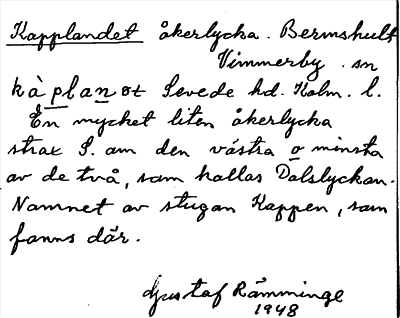 Kapplandet åkerlycka. Bermshult
Vimmerby sn
kàplanet Sevede hd. Kalm. l.
En mycket liten åkerlycka
strax S. om den västra o minsta
av de två, som kallas Dalslyckan.
Namnet av stugan Kappen, som
fanns där.
Gustaf Rämminge
1948